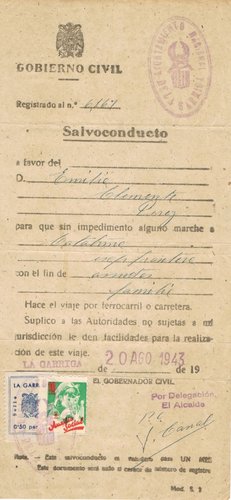 GOBIERNO CIVIL
Registrado al n.º 6167
Salvoconducto
a favor del
D. Emilio
Clemente
Perez
para que sin impedimento alguno marche a
Cataluña
con el fin de asuntos
familia
Hace el viaje por ferrocarril o carretera.
Suplico a las Autoridades no sujetas a mi
jurisdicción le den facilidades para la realiza-
ción de este viaje.
LA GARRIGA de 20 AGO 1943 de 19
EL GOBERNADOR CIVIL,
Por Delegación,
El Alcalde
LA GARRI
0'50 pts
Auxilio Social
P.D.
J. Canal
Nota. — Este salvoconducto es valedero para UN MES
Este documento será nulo si carece de número de registro
Mod. S. 2